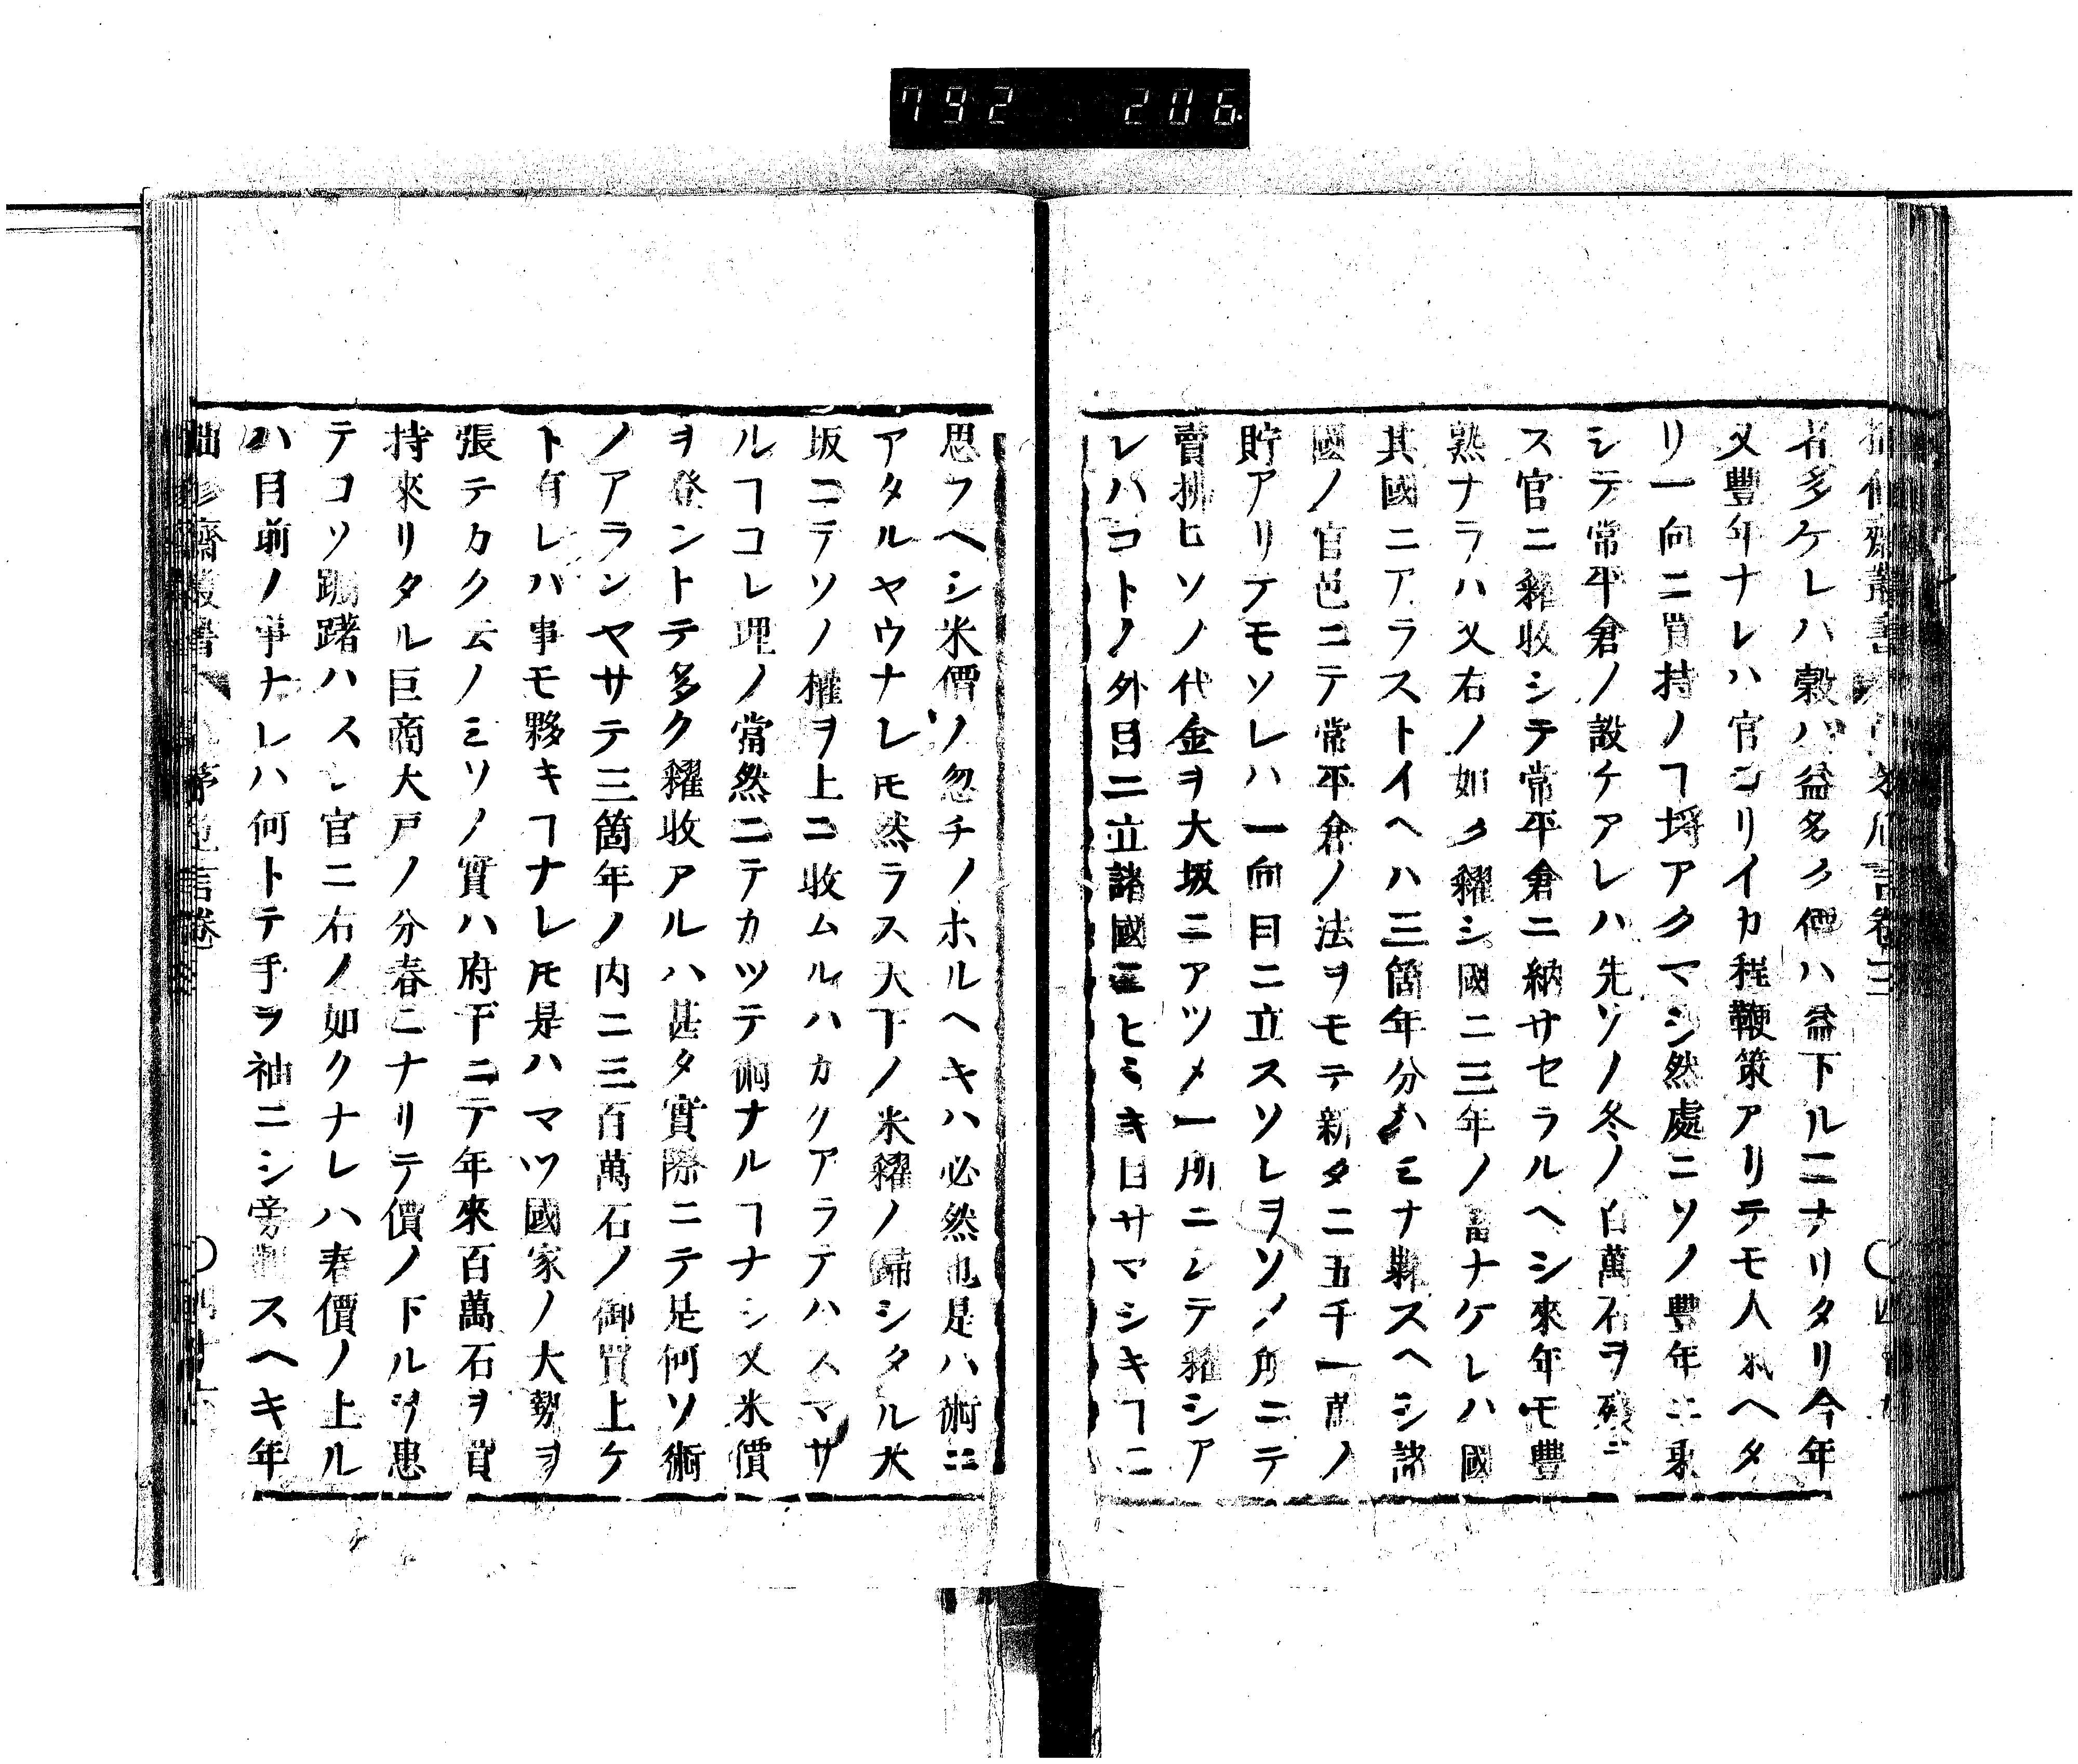 792 206
者多ケレハ穀ハ益多ク價ハ益下ルニナリタリ今年
又豐年ナレハ官ニリイカ程鞭策アリテモ人氣ヘタ
リ一向ニ買持ノヿ埓アクマシ然處ニソノ豐年ニ乘
シテ常平倉ノ設ケアレハ先ソノ冬ノ百萬石ヲ殘ラ
ス官ニ糴收シテ常平倉ニ納サセラルヘシ來年モ豐
熟ナラハ又右ノ如ク糴シ國ニ三年ノ畜ナケレハ國
其國ニアラストイヘハ三箇年分ハミナ糶スヘシ諸
國ノ官邑ニテ常平倉ノ法ヲモテ新タニ五千一萬ノ
貯アリテモソレハ一向目ニ立スソレヲソノ所ニテ
賣拂ヒソノ代金ヲ大坂ニアツメ一所ニシテ糴シア
レハコトノ外目ニ立諸國ニヒヽキ目サマシキヿニ
思フヘシ米價ソ忽チノホルヘキハ必然也是ハ術ニ
アタルヤウナレ𪜈然ラス天下ノ米糴ノ歸シタル大
坂ニテソノ權ヲ上ニ收ムルハカクアラテハスマサ
ルヿコレ理ノ當然ニテカツテ術ナルヿナシ又米價
ヲ登ントテ多ク糴收アルハ甚タ實際ニテ是何ソ術
ノアランヤサテ三箇年ノ内ニ三百萬石ノ御買上ケ
ト有レハ事モ夥キヿナレ𪜈是ハマツ國家ノ大勢ヲ
張テカク云ノミソノ實ハ府下ニテ年來百萬石ヲ買
持來リタル巨商大戸ノ分春ニナリテ價ノ下ルヲ患
テコソ躊躇ハスレ官ニ右ノ如クナレハ春價ノ上ル
ハ目前ノ事ナレハ何トテ手ヲ袖ニシ旁觀スヘキ年